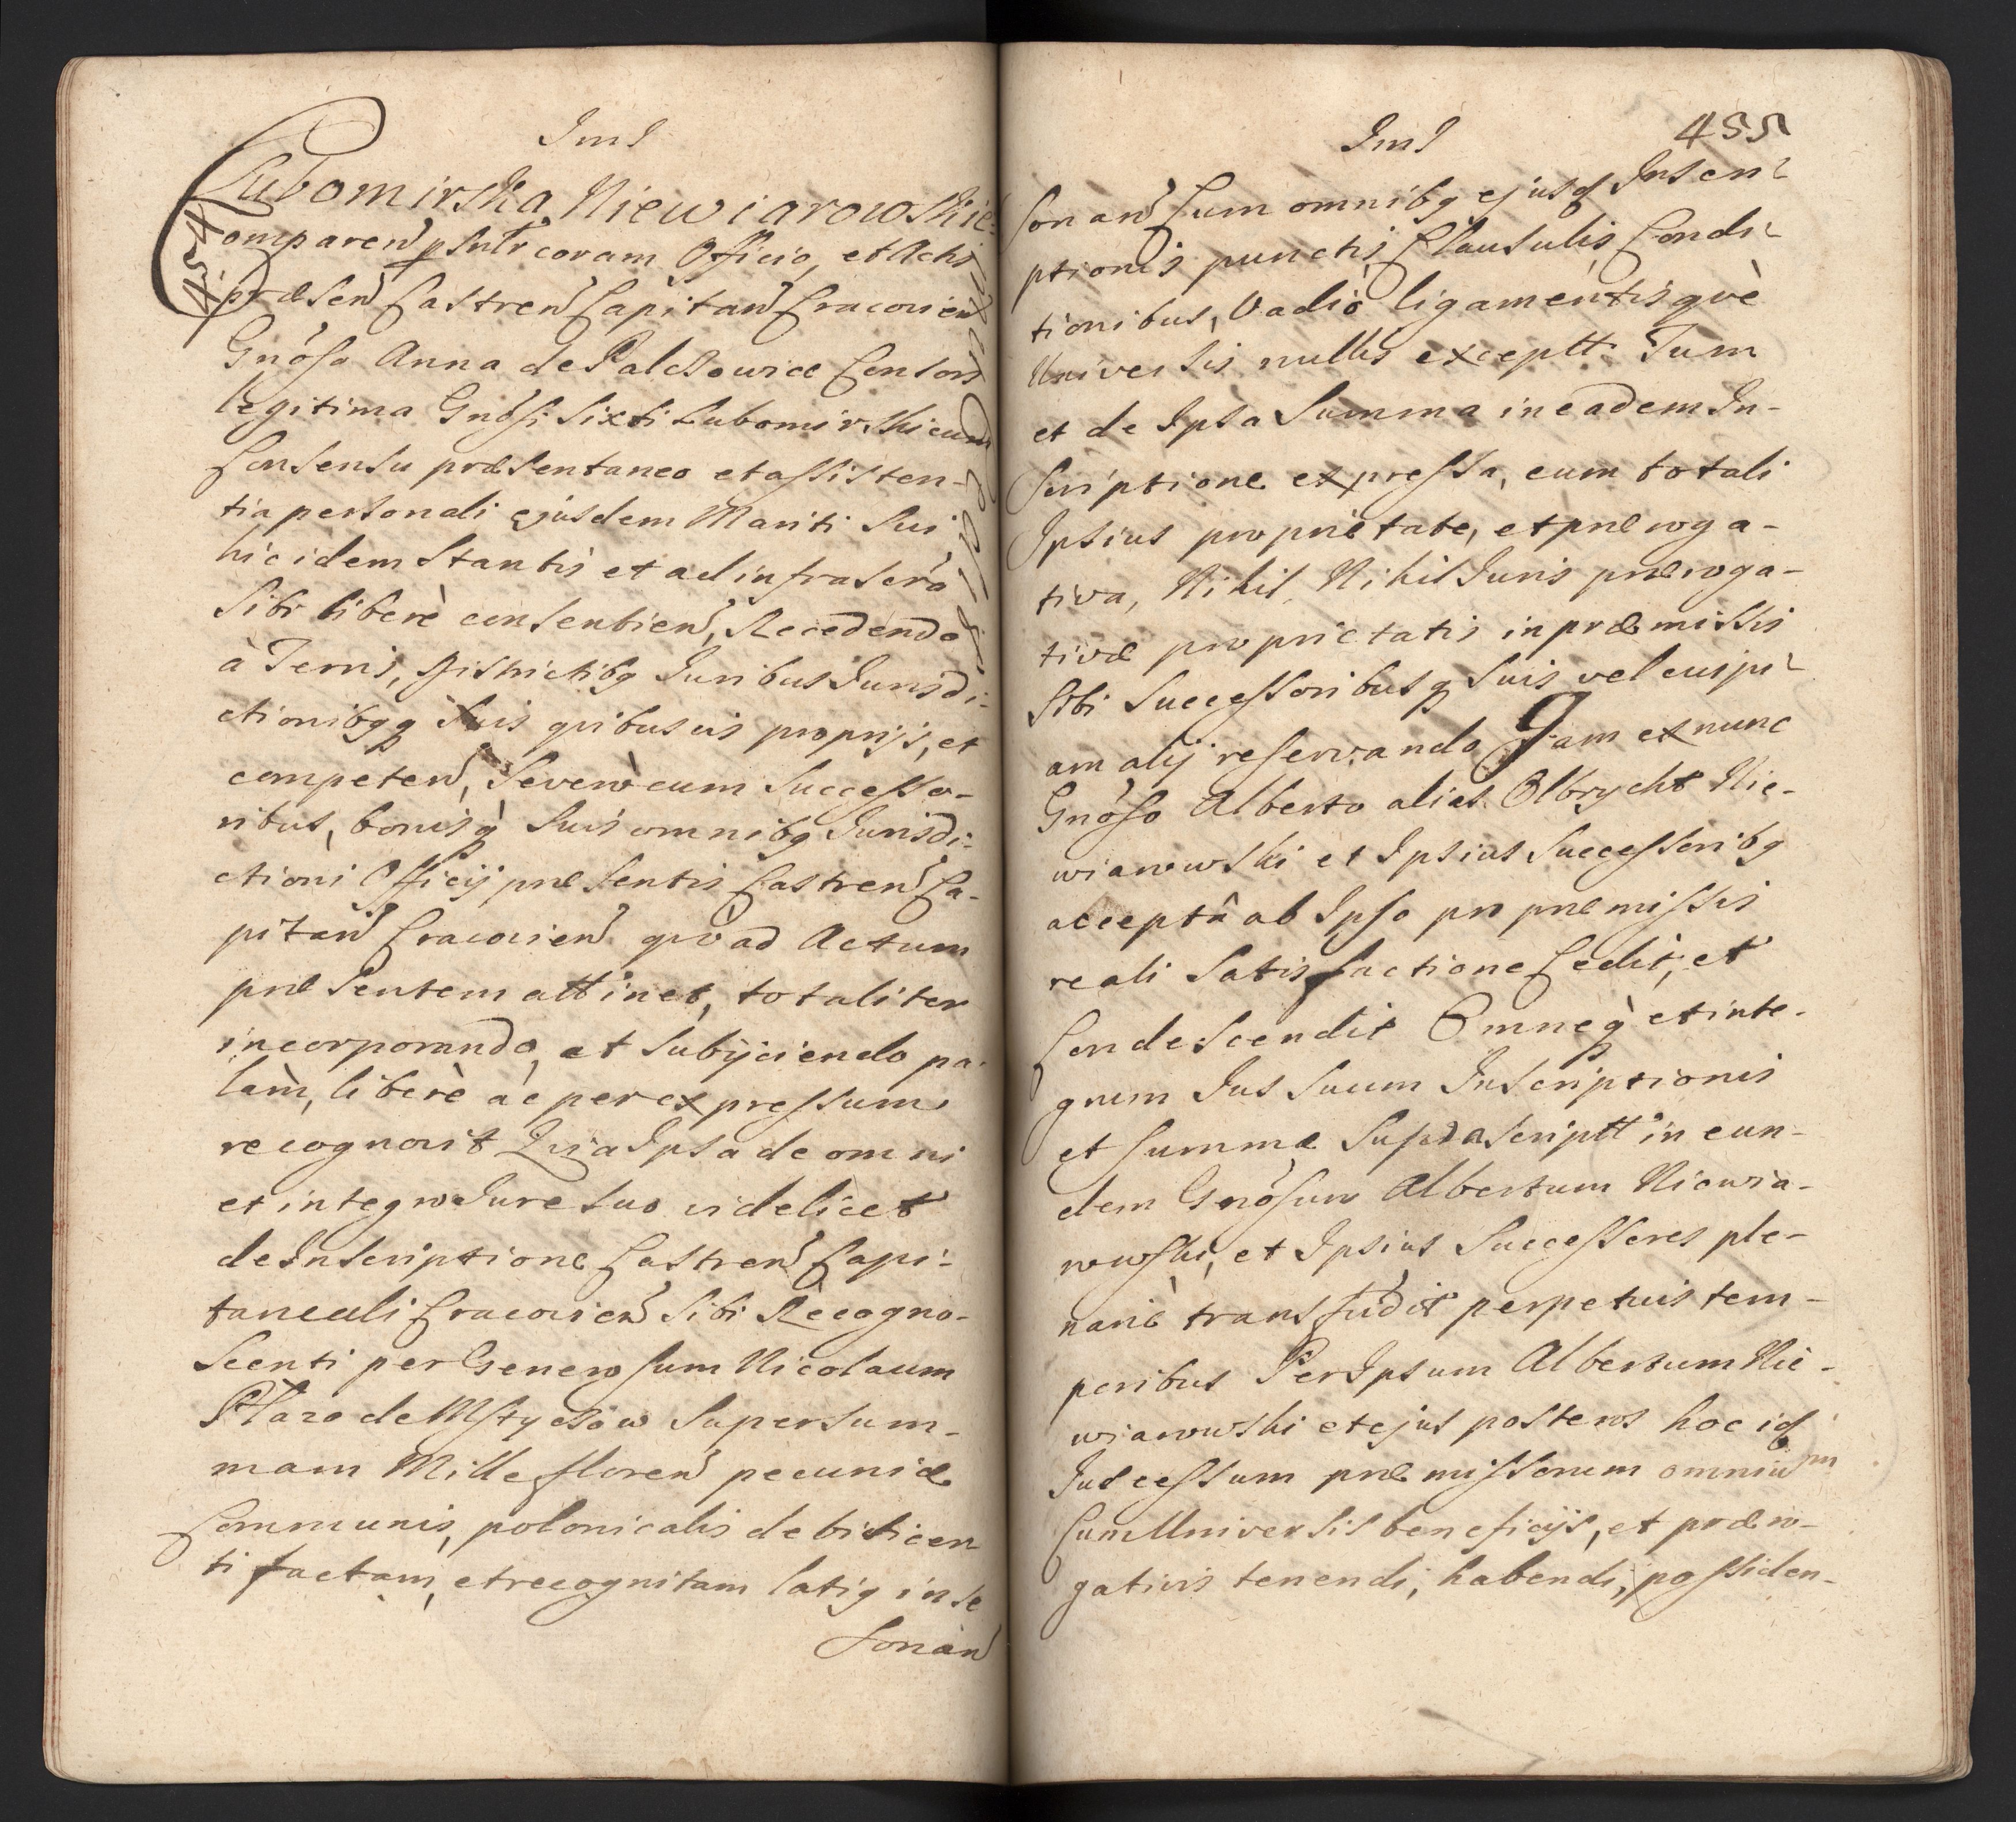 Lubomirska Niewiarowskie
454
omparen͂ psnłr coram Officio, et Actis
præsen͂ Castren͂ Capitan͂ Cracovien͂
Gnosa Anna de Palczowice Consors
legitima Gnosi Sixti Lubomirski cum
Consensu præsentaneo et assisten-
tia personali ejusdem Mariti Sui
hic idem Stantis et ad infrascrã
Sibi liberè consentien͂, Recedendo
à Terris, Districtibq Juribus Jurisdi-
ctionibqq Suis qvibusvis proprijs, et
competen͂, Severò cum Successo-
ribus, bonisq̀ Suis omnibq Jurisdi-
ctioni Officij præsentis Castren͂ Ca-
pitan͂ Cracovien͂ qvò ad Actum
præsentem attinet, totaliter
incorporando, et Subijciendo pa-
làm, liberè àc per expressum
recognovit Qvia Ipsa de omni
et integro Jure Suo videlicet
de Inscriptione Castren͂ Capi-
taneali Cracovien͂ Sibi Recogno-
Scenti per Generosum Nicolaum
Płaza de Mstyczow Super Sum-
mam Mille floren͂ pecuniæ
Communis, polonicalis debiti cer-
ti factam, et recognitam latiq in se
Sonàn͂
455
Son an͂ Cum omnibq ejusd Inscri-
ptionis punctis, Clausulis, Condi-
tionibus, Vadiò ligamentisqvè
Universis nullis exceptt. Tum
et de Ipsa Summa in eadem In-
scriptione expressa, cum totali
Ipsius proprietate, et præroga-
tiva, Nihil, Nihil Juris præroga-
tivæ proprietatis in præmissis
Sibi Successoribusq Suis vel cuipi-
am alij reservando Jam ex nunc
Gnoso Alberto alias Olbrycht Nie-
wiarowski et Ipsius Successoribq
acceptâ ab Ipso pro præmissis
reali Satisfactione Cedit, et
Condescendit Omneq̀ et inte-
grum Jus Suum Inscriptionis
et Summæ Suprascriptt in eun-
dem Gnosum Albertum Niewia-
rowski, et Ipsius Successores ple-
nariè transfudit perpetuis tem-
poribus Per Ipsum Albertum Nie-
wiarowski et ejus posteros hoc id
Jus cessum præmissorum omnium
Cum Universis beneficijs, et præro-
gativis tenendi, habendi, possiden-